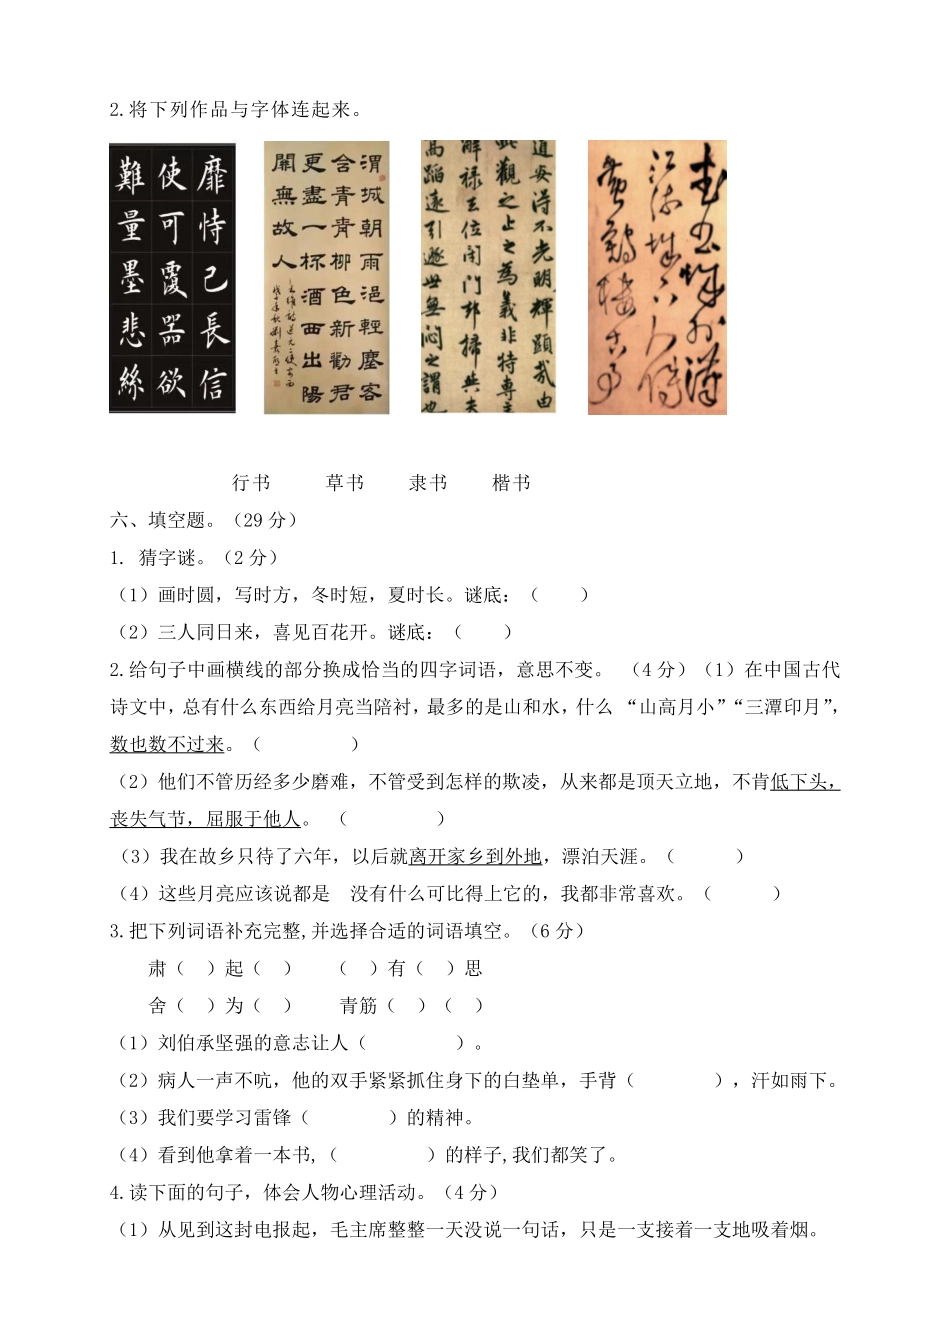 2.将下列作品与字体连起来。
靡恃己長信
使可覆器欲
難量墨悲絲
渭城朝雨浥輕塵客
舍青青柳色新勸君
更盡一杯酒西出陽
關無故人
道安得不光明輝顕哉由
此觀之止之為義非特專主
解禄去位閉門却掃與夫
高蹈遠引遯世無悶之謂也
行书 草书 隶书 楷书
六、填空题。（29 分）
1. 猜字谜。（2 分）
（1）画时圆，写时方，冬时短，夏时长。谜底：（ ）
（2）三人同日来，喜见百花开。谜底：（ ）
2.给句子中画横线的部分换成恰当的四字词语，意思不变。 （4 分）（1）在中国古代
诗文中，总有什么东西给月亮当陪衬，最多的是山和水，什么 “山高月小”“三潭印月”，
数也数不过来。（ ）
（2）他们不管历经多少磨难，不管受到怎样的欺凌，从来都是顶天立地，不肯低下头，
丧失气节，屈服于他人。 （ ）
（3）我在故乡只待了六年，以后就离开家乡到外地，漂泊天涯。（ ）
（4）这些月亮应该说都是 没有什么可比得上它的，我都非常喜欢。（ ）
3.把下列词语补充完整,并选择合适的词语填空。（6 分）
肃（ ）起（ ） （ ）有（ ）思
舍（ ）为（ ） 青筋（ ）（ ）
（1）刘伯承坚强的意志让人（ ）。
（2）病人一声不吭，他的双手紧紧抓住身下的白垫单，手背（ ），汗如雨下。
（3）我们要学习雷锋（ ）的精神。
（4）看到他拿着一本书,（ ）的样子,我们都笑了。
4.读下面的句子，体会人物心理活动。（4 分）
（1）从见到这封电报起，毛主席整整一天没说一句话，只是一支接着一支地吸着烟。